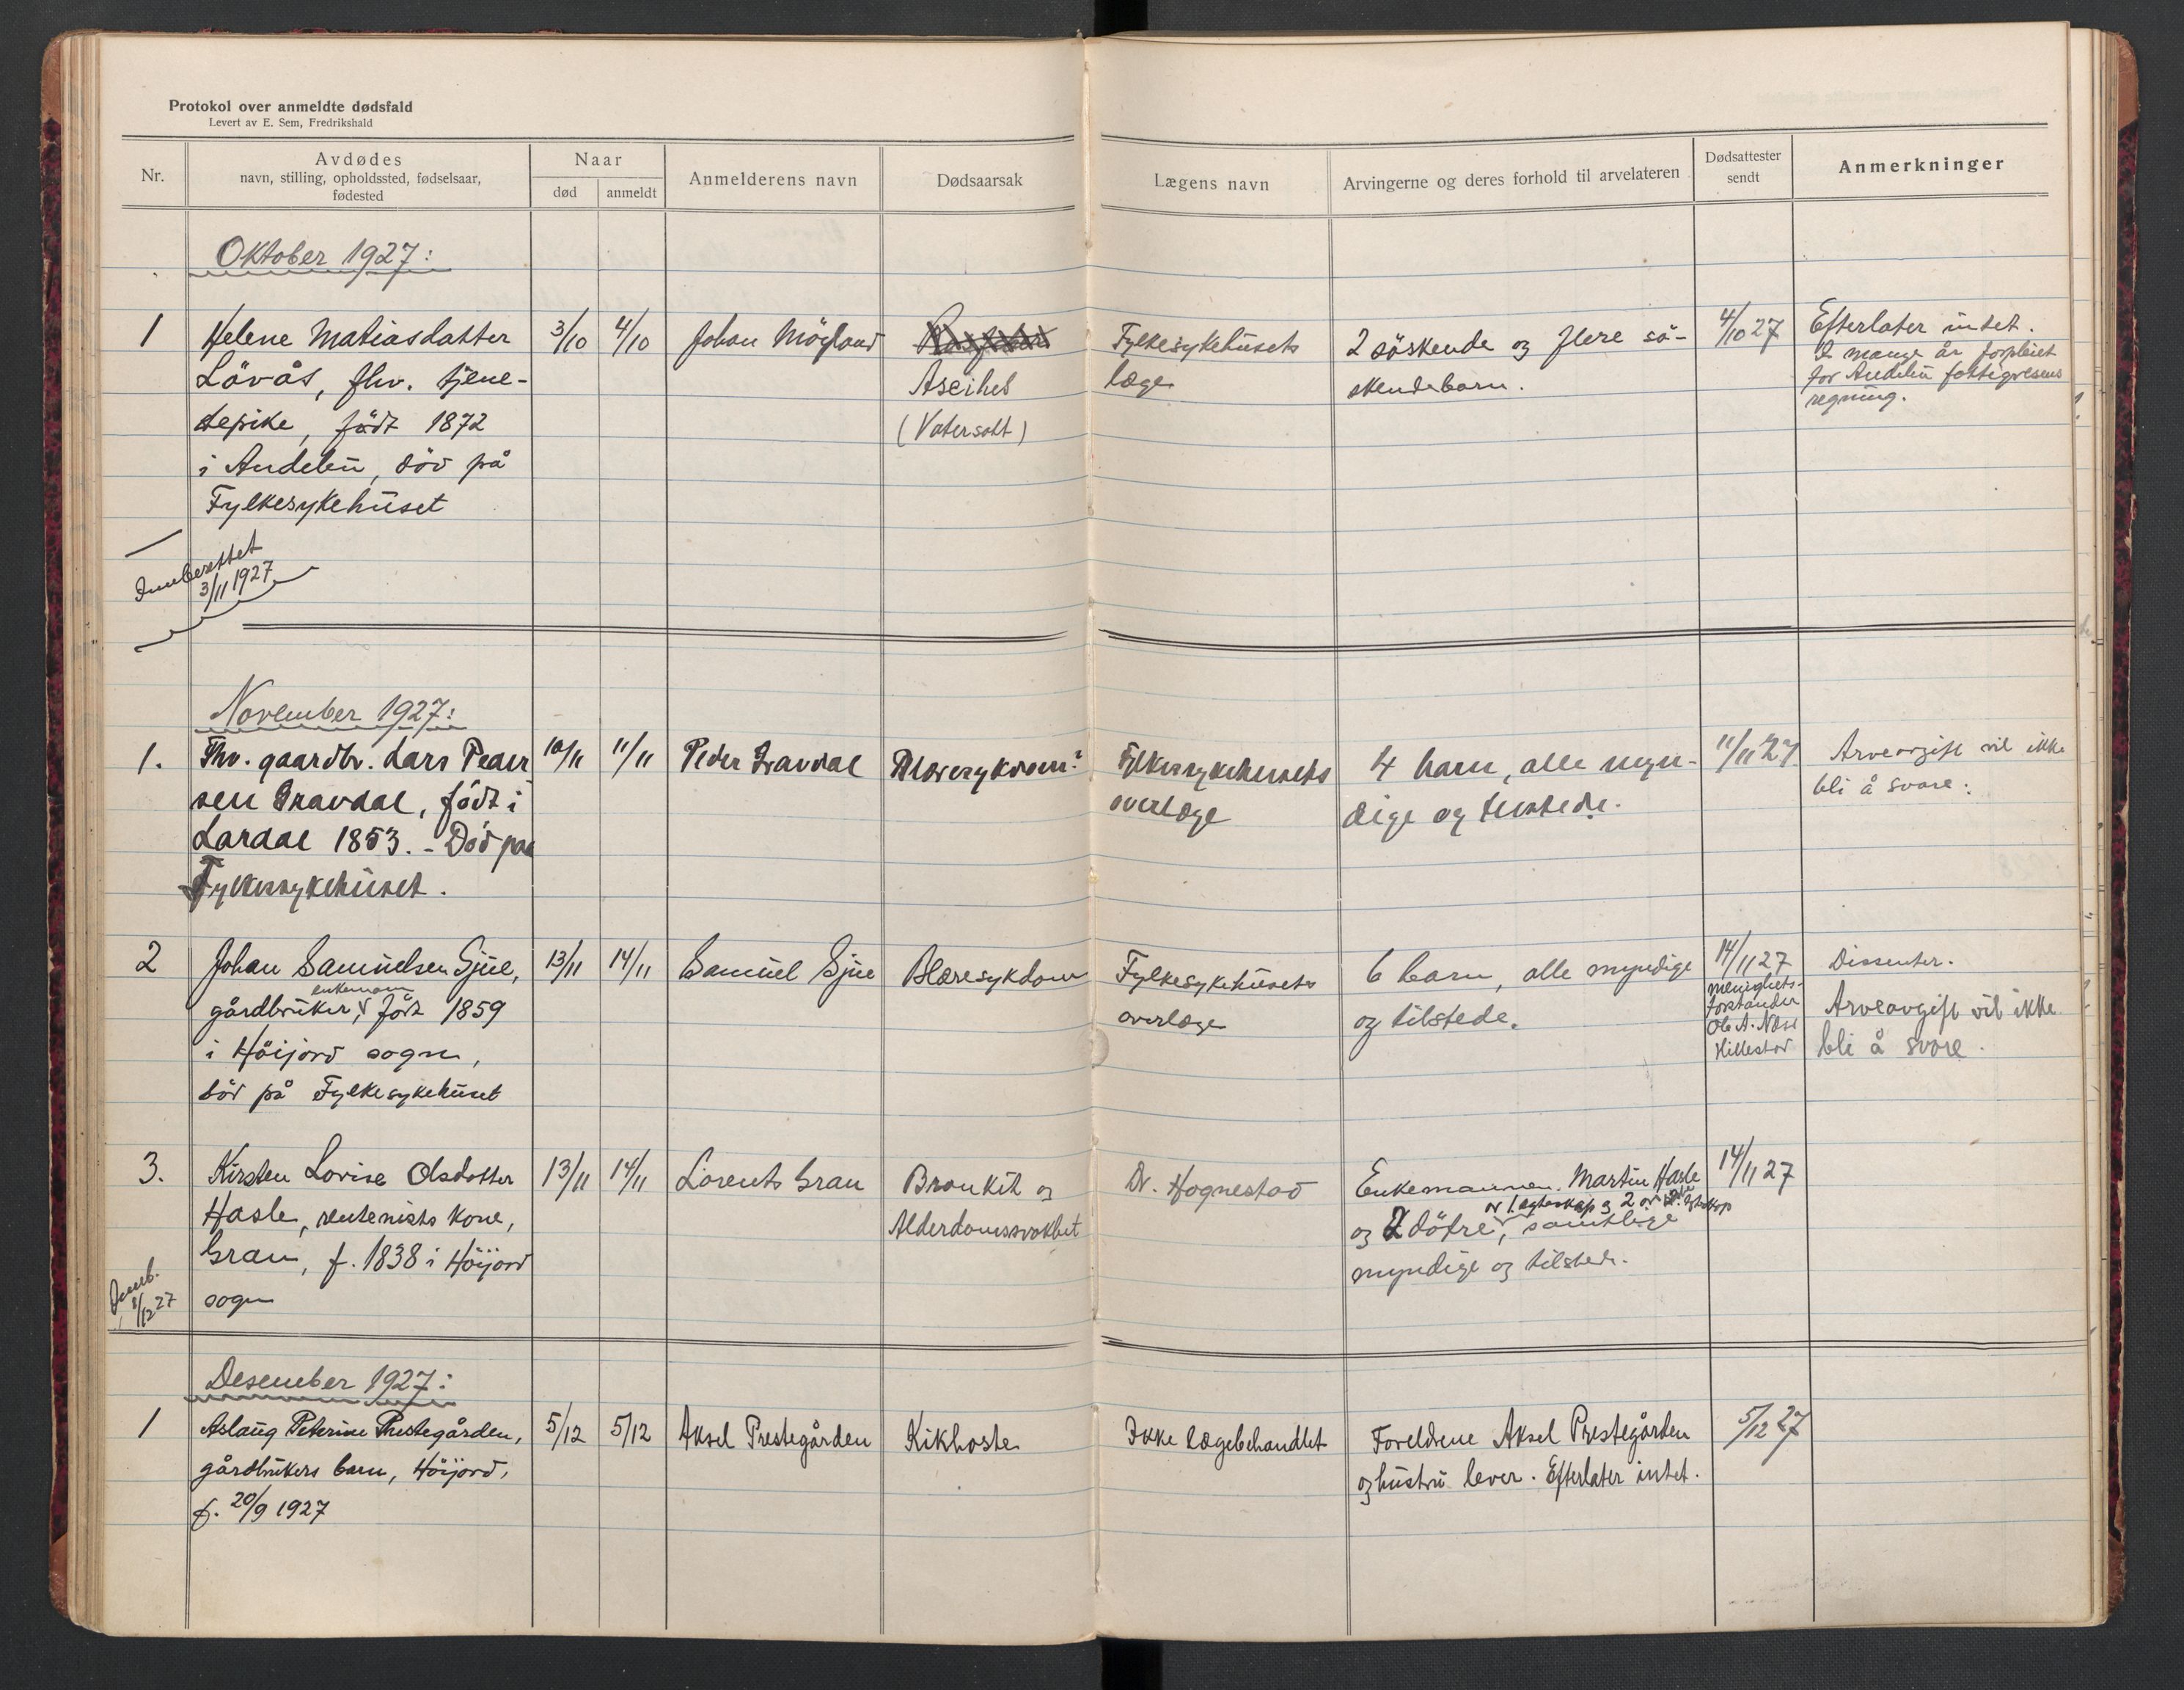 Protokol over anmeldte dødsfald
Levert av E. Sem, Fredrikshald
Nr.
Avdødes
navn, stilling, opholdssted, fødselsaar,
fødested
Naar
død
anmeldt
Anmelderens navn
Dødsaarsak
Lægens navn
Arvingerne og deres forhold til arvelateren
Dødsattester
sendt
Anmerkninger
Oktober 1927:
1
Helene Matiasdatter
Lövås, fhv. tjene-
stepike, födt 1872
i Andebu, död på
Fylkesykehuset
3/10
4/10
Johan Möyland
Ascihes
(Vatersott)
Fylkesykehusets
læge
2 söskende og flere sö-
skendebarn.
4/10 27
Efterlater intet.
I mange år forpleiet
for Andebu fattigvesens
regning.
Innberettet
3/11 1927
November 1927:
1.
Fhv. gaardbr. Lars Peder
sen Gravdal, födt i
Lardal 1853. - Död paa
Fylkessykehuset.
10/11
11/11
Peder Gravdal
Blæresykdom?
Fylkessykehusets
overlæge
4 barn, alle myn-
dige og tilstede.
11/11 27
Arveavgift vil ikke
bli å svare.
2
Johan Samuelsen Gjue,
enkemann
gårdbruker, födt 1859
i Höijord sogn,
död på Fylkesykehuset
13/11
14/11
Samuel Gjue
Blæresykdom
Fylkesykehusets
overlæge
6 barn, alle myndige
og tilstede.
14/11 27
menighets-
forstander
Ole A. Næss
Hillestad
Dissenter.
Arveavgift vil ikke
bli å svare.
3.
Kirsten Lovise Olsdatter
Hasle, rentenists kone,
Gran, f. 1838 i Höijord
sogn
13/11
14/11
Lorents Gran
Bronkit og
Alderdomssvakhet
Dr. Hognestad
Enkemannen Martin Hasle
av 1. egteskap og 2 av 2.
og 2 döfre, samtlige
myndige og tilstede.
14/11 27
Innb.
8/12 27
Desember 1927:
1
Aslaug Peterine Prestegården,
gårdbrukers barn, Höijord,
f. 20/9 1927
5/12
5/12
Aksel Prestegården
Kikhoste
Ikke lægebehandlet
Foreldrene Aksel Prestegården
og hustru lever. Efterlater intet.
5/12 27